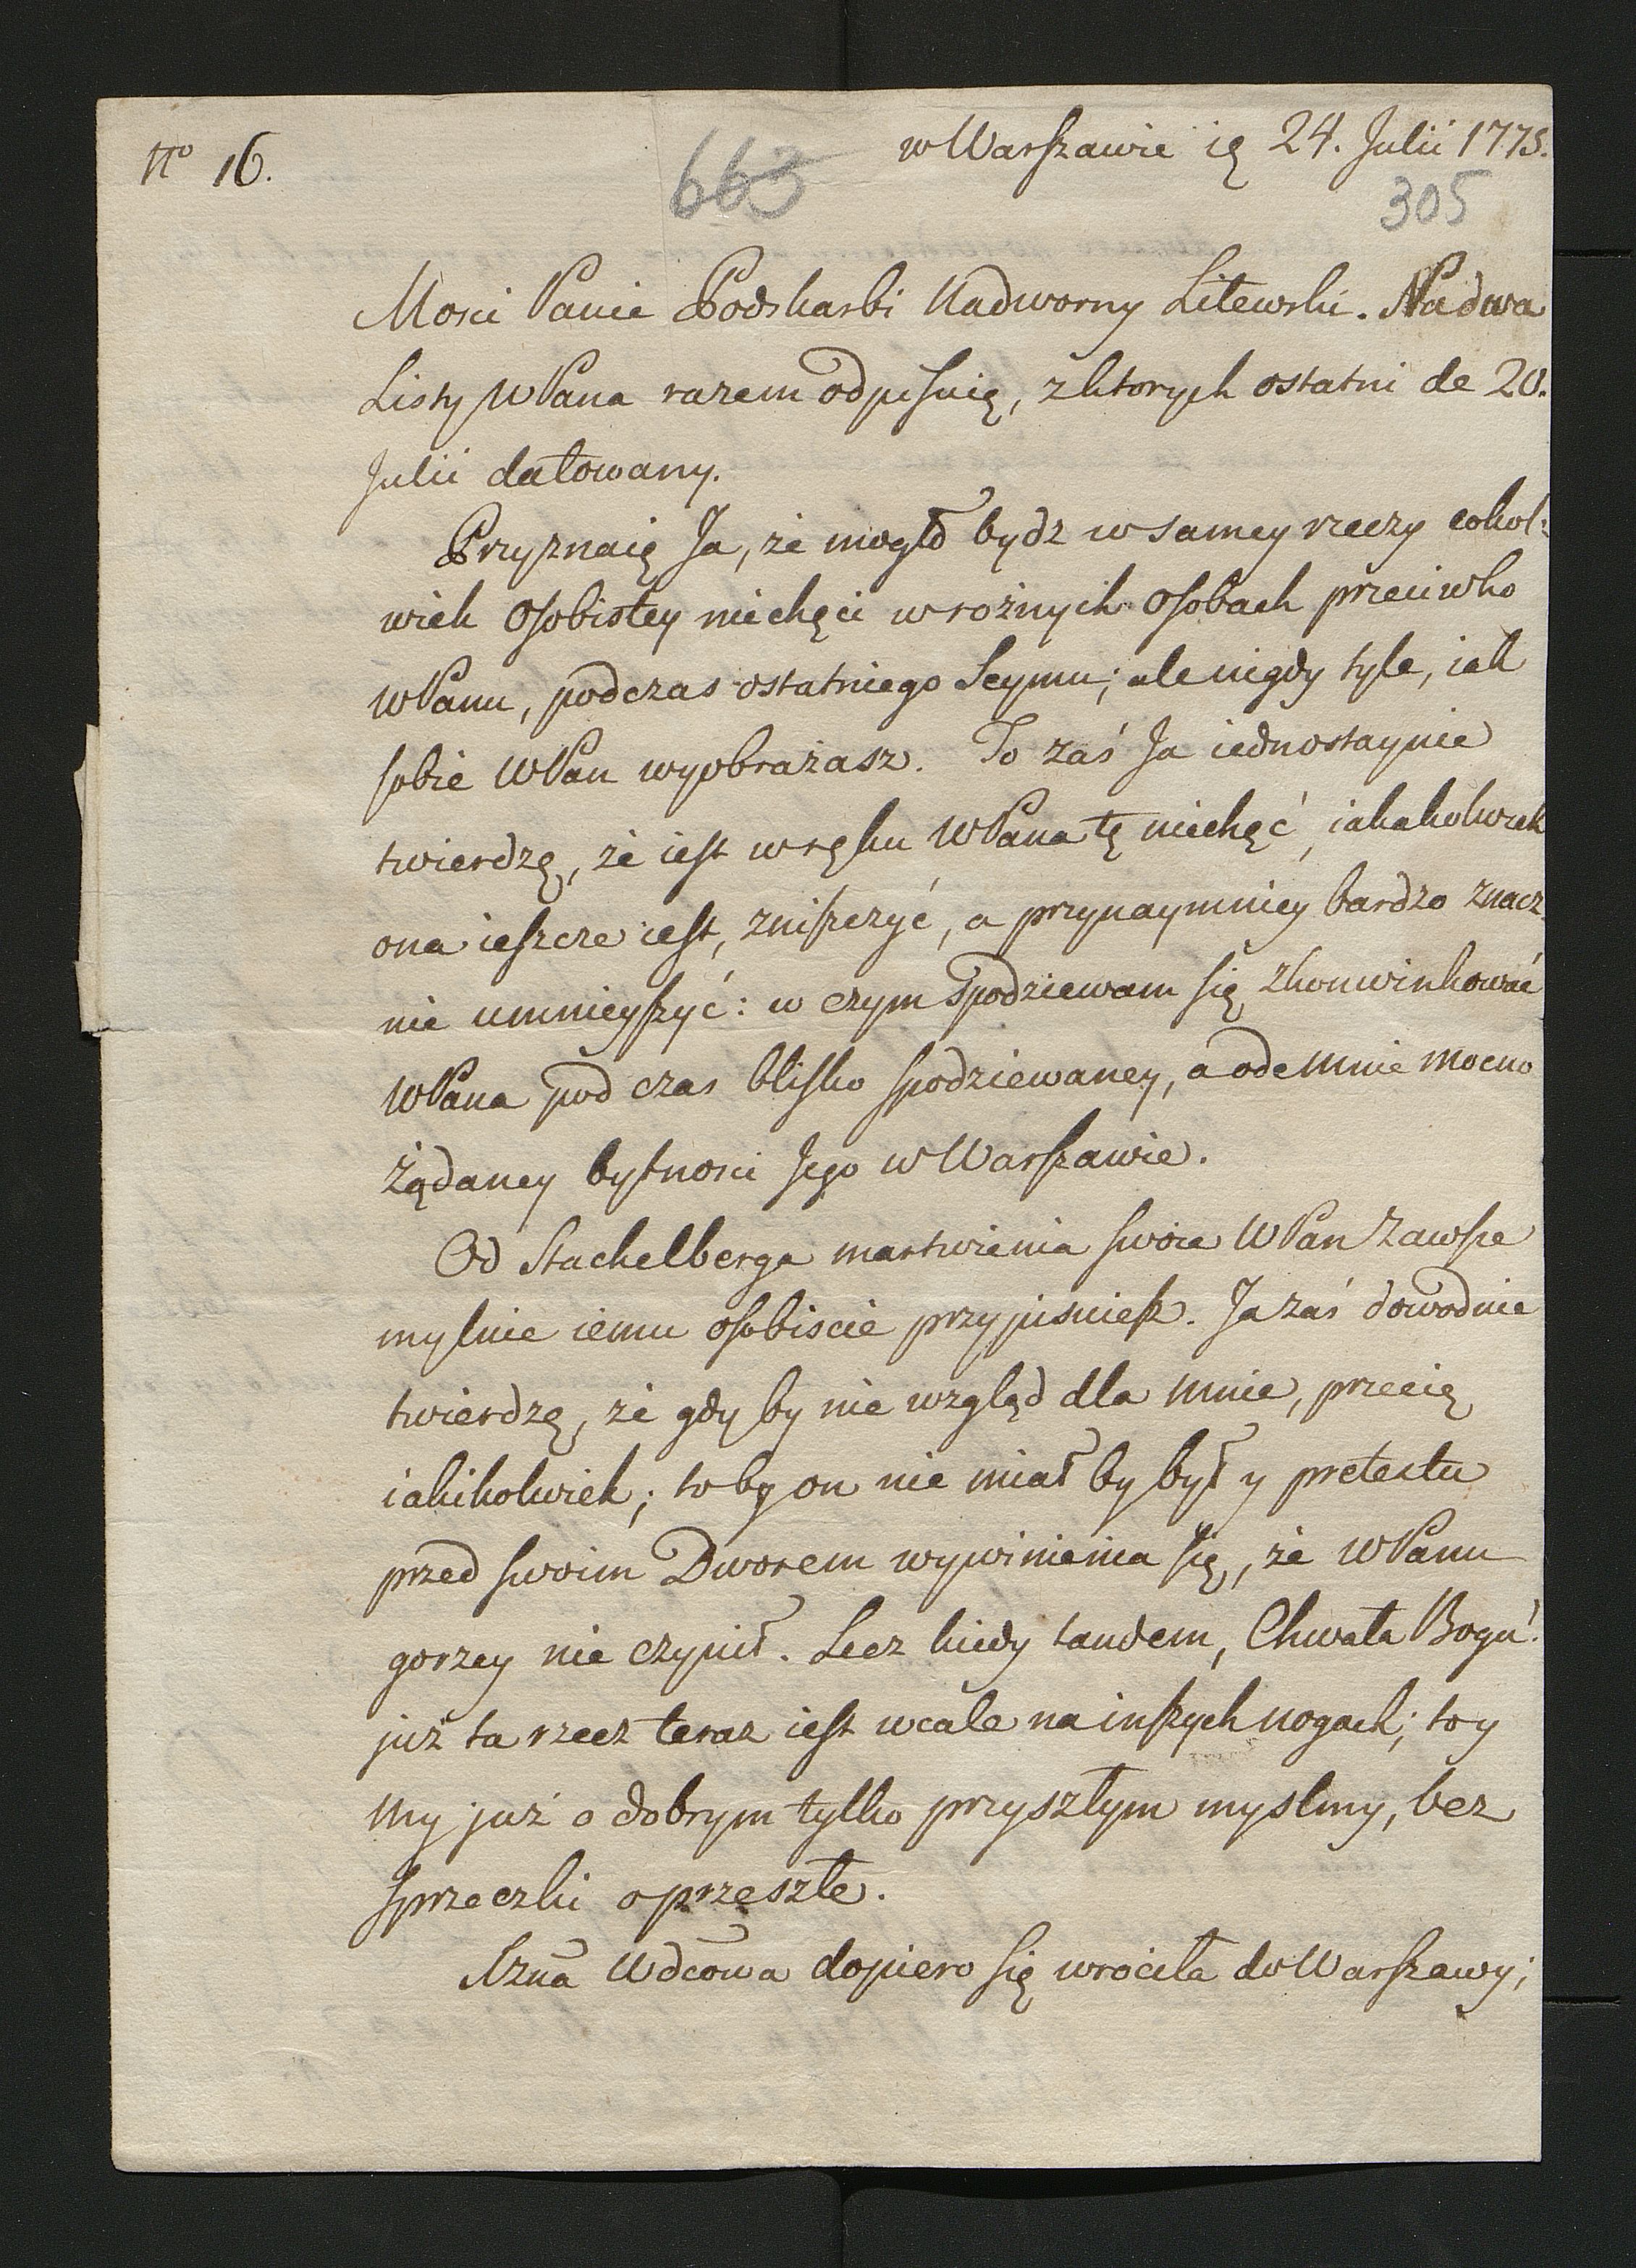 No 16.
w Warszawie ię 24. Julii 1775.
663
305
Mosci Panie Podskarbi Nadworny Litewski. Na dwa
Listy WPana razem odpisuię, z ktorych ostatni de 20.
Julii datowany.
Przyznaię Ja, że mogło bydz w samey rzeczy cokol:
wiek osobistey niechęci w rożnych osobach przeciwko
WPanu, podczas ostatniego Seymu; ale nigdy tyle, iak
sobie WPan wyobrażasz. To zaś Ja iednostaynie
twierdzę, że iest w ręku WPana tę niechęć, iakakolwiek
ona ieszcze iest, zniszczyć, a przynaymniey bardzo znacz
nie umnieyszyć: w czym spodziewam się zkonwinkować
WPana pod czas blisko spodziewaney, a odemnie mocno
żądaney bytnosci Jego w Warszawie.
Od Stachelberga martwienia swoie WPan zawsze
mylnie iemu osobiscie przypisuiesz. Ja zaś dowodnie
twierdzę, że gdy by nie wzgląd dla mnie, przecię
iakikolwiek; to by on nie miał by był y pretextu
przed swoim Dworem wywinienia się, że WPanu
gorzey nie czynił. Lecz kiedy tandem, Chwała Bogu!
już ta rzecz teraz iest wcale na inszych nogach; to y
my już o dobrym tylko przyszłym myslmy, bez
sprzeczki o przeszłe.
Xzna Wdcowa dopiero się wrociła do Warszawy;